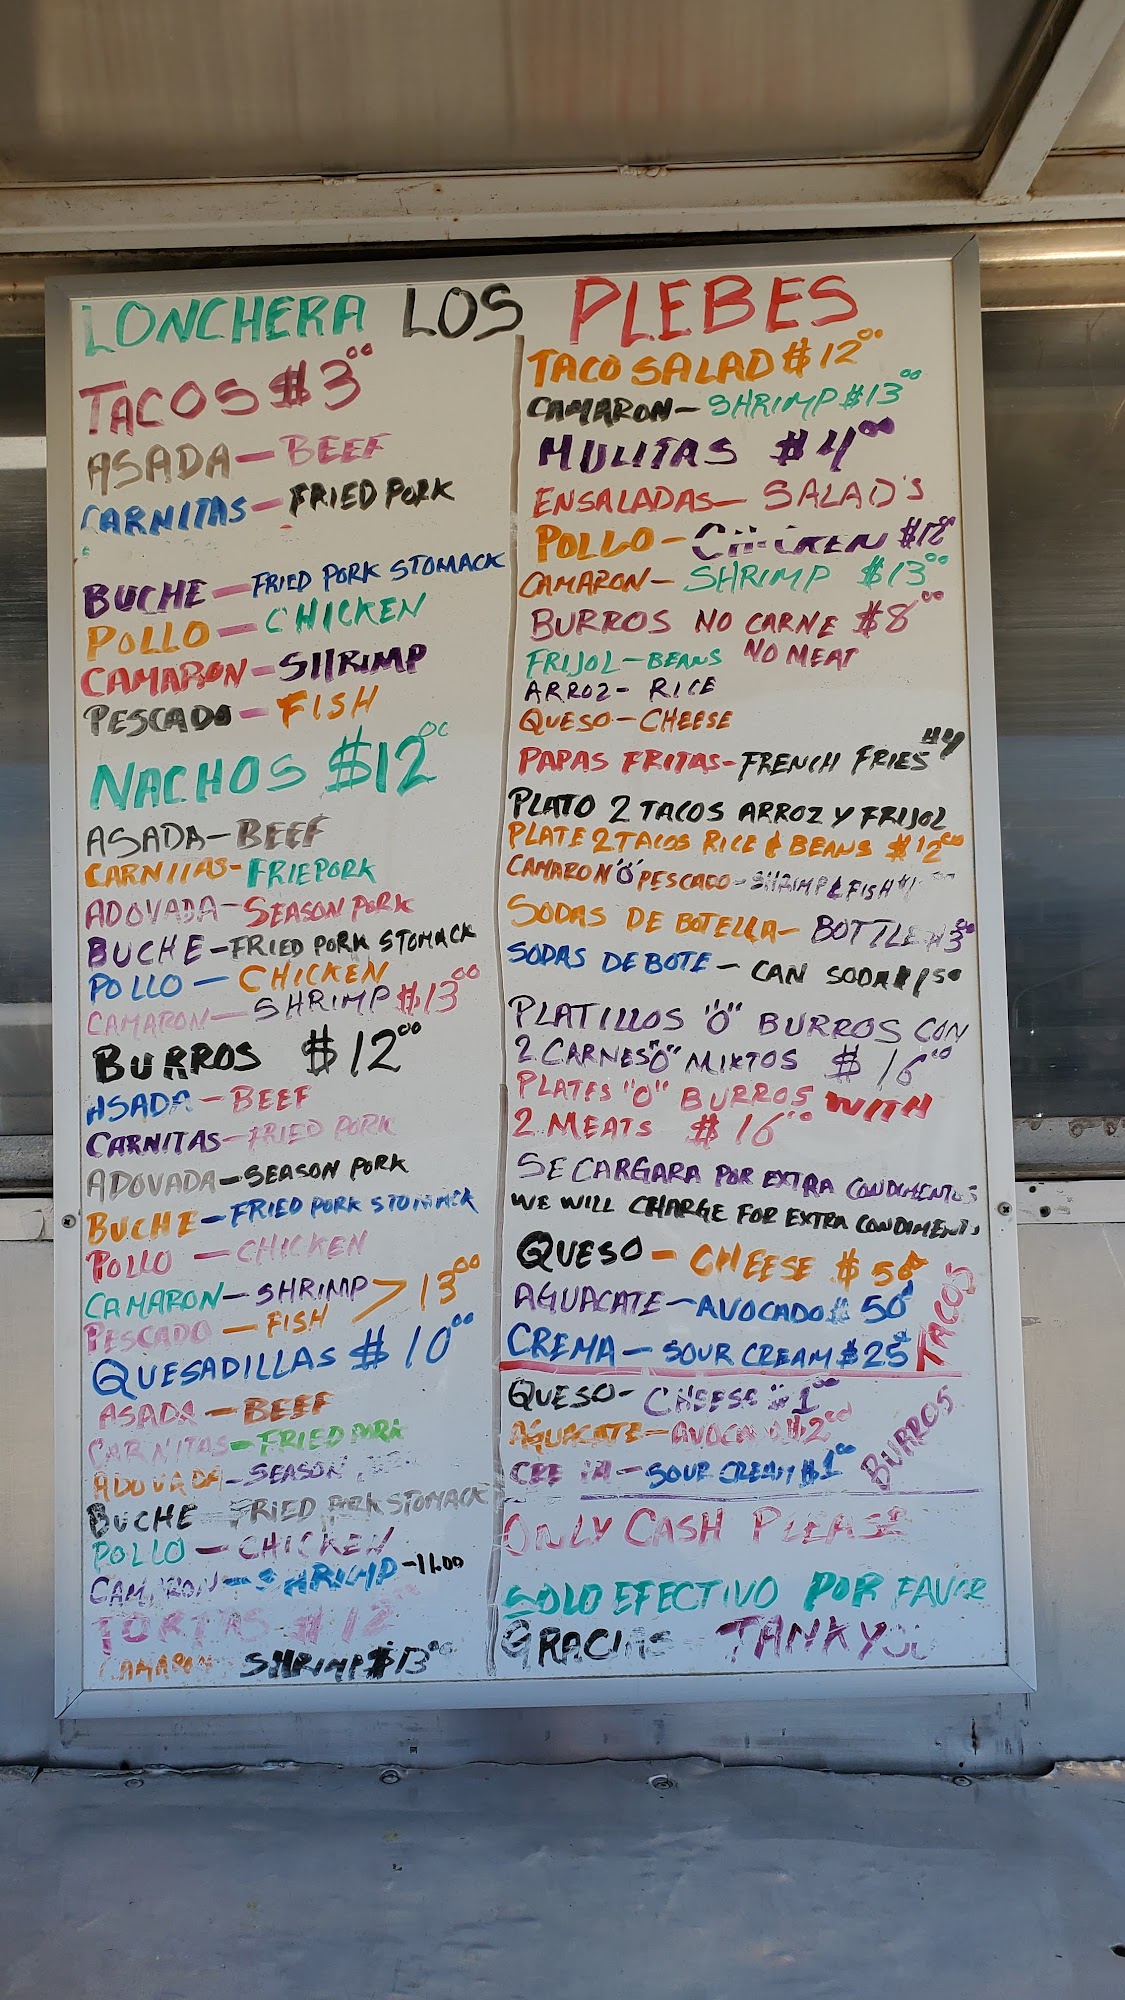 LONCHERA LOS PLEBES
TACOS $3⁰⁰
ASADA — BEEF
CARNITAS - FRIED PORK
BUCHE — FRIED PORK STOMACK
POLLO — CHICKEN
CAMARON - SHRIMP
PESCADO - FISH
NACHOS $12
ASADA - BEEF
CARNITAS - FRIEPORK
ADOVADA - SEASON PORK
BUCHE - FRIED PORK STOMACK
POLLO — CHICKEN
CAMARON — SHRIMP $13⁰⁰
BURROS $12⁰⁰
ASADA - BEEF
CARNITAS - FRIED PORK
ADOVADA - SEASON PORK
BUCHE - FRIED PORK STOMMACK
POLLO — CHICKEN
CAMARON - SHRIMP > 13⁰⁰
PESCADO — FISH
QUESADILLAS $10⁰⁰
ASADA — BEEF
CARNITAS - FRIED PORK
ADOVADA - SEASON
BUCHE - FRIED PORK STOMACK
POLLO — CHICKEN
CAMARON - SHRIMP - 11.00
TORTAS $12
CAMARON - SHRIMP $13⁰⁰
TACO SALAD $12⁰⁰
CAMARON - SHRIMP $13⁰⁰
MULITAS $4⁰⁰
ENSALADAS — SALAD'S
POLLO - CHICKEN $12
CAMARON - SHRIMP $13⁰⁰
BURROS NO CARNE $8⁰⁰
FRIJOL - BEANS NO MEAT
ARROZ - RICE
QUESO - CHEESE
PAPAS FRITAS - FRENCH FRIES $4
PLATO 2 TACOS ARROZ Y FRIJOL
PLATE 2 TACOS RICE & BEANS $12⁰⁰
CAMARON "O" PESCADO - SHRIMP & FISH
SODAS DE BOTELLA - BOTTLE $3⁰⁰
SODAS DE BOTE - CAN SODA $1⁵⁰
PLATILLOS "O" BURROS CON
2 CARNES "O" MIXTOS $16⁰⁰
PLATES "O" BURROS WITH
2 MEATS $16⁰⁰
SE CARGARA POR EXTRA CONDIMENTOS
WE WILL CHARGE FOR EXTRA CONDIMENTS
QUESO - CHEESE $50¢
AGUACATE - AVOCADO $50¢
CREMA — SOUR CREAM $25¢
TACOS
QUESO - CHEESE $1⁰⁰
AGUACATE - AVOCADO $2
CREMA - SOUR CREAM $1⁰⁰
BURROS
ONLY CASH PLEASE
SOLO EFECTIVO POR FAVOR
GRACIAS - TANK YOU